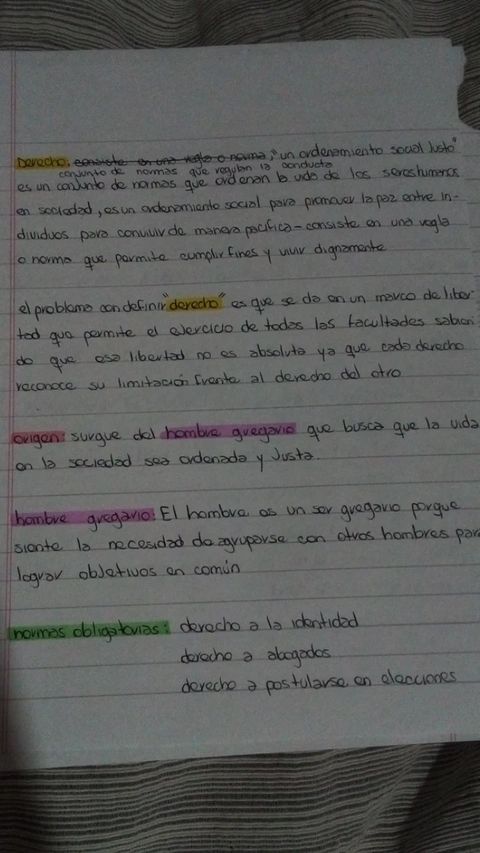 Derecho, consiste en una regla o norma, "un ordenamiento social justo"
conjunto de normas que regulan la conducta
es un conjunto de normas que ordenan la vida de los seres humanos
en sociedad, es un ordenamiento social para promover la paz entre in-
dividuos para convivir de manera pacífica - consiste en una regla
o norma que permite cumplir fines y vivir dignamente
el problema con definir "derecho" es que se da en un marco de liber-
tad que permite el ejercicio de todas las facultades sabien
do que esa libertad no es absoluta ya que cada derecho
reconoce su limitación frente al derecho del otro
origen: surgue del hombre gregario que busca que la vida
en la sociedad sea ordenada y Justa.
hombre gregario: El hombre es un ser gregario porque
siente la necesidad de agruparse con otros hombres para
lograr objetivos en común
normas obligatorias: derecho a la identidad
derecho a abogados
derecho a postularse en elecciones